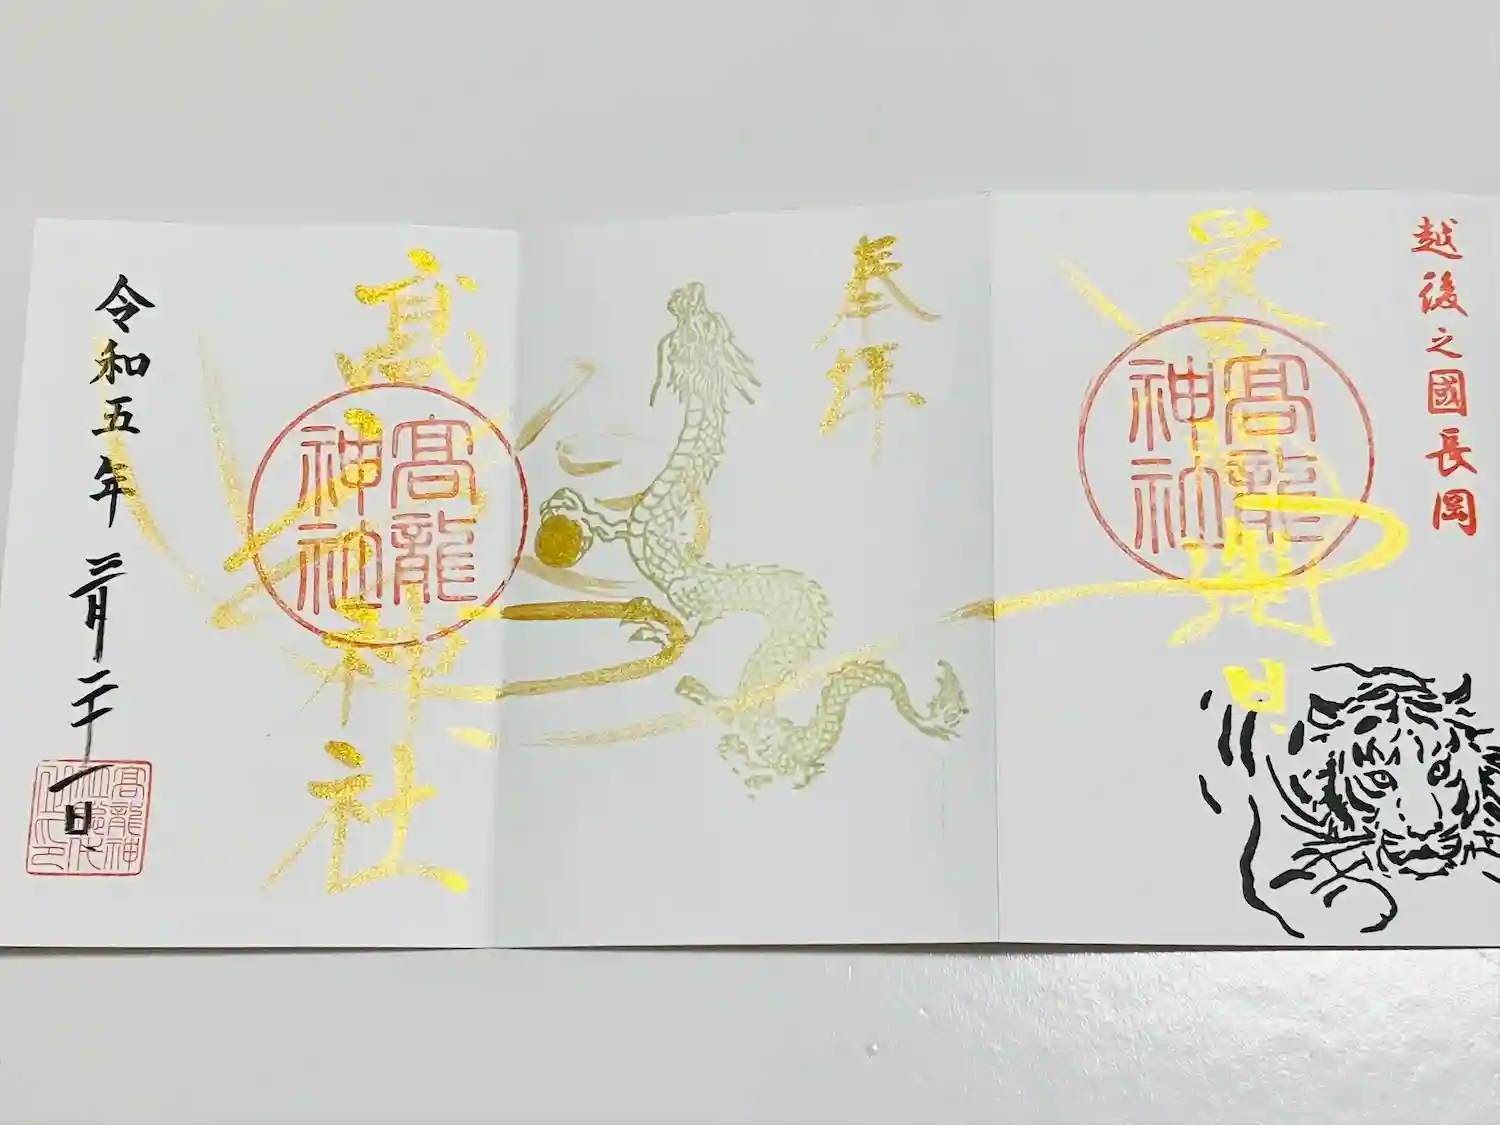 越後之國長岡
最 開 日
高龍
神社
奉拝
高龍神社
高龍
神社
令和五年三月二十一日
高龍神
社総代
之印